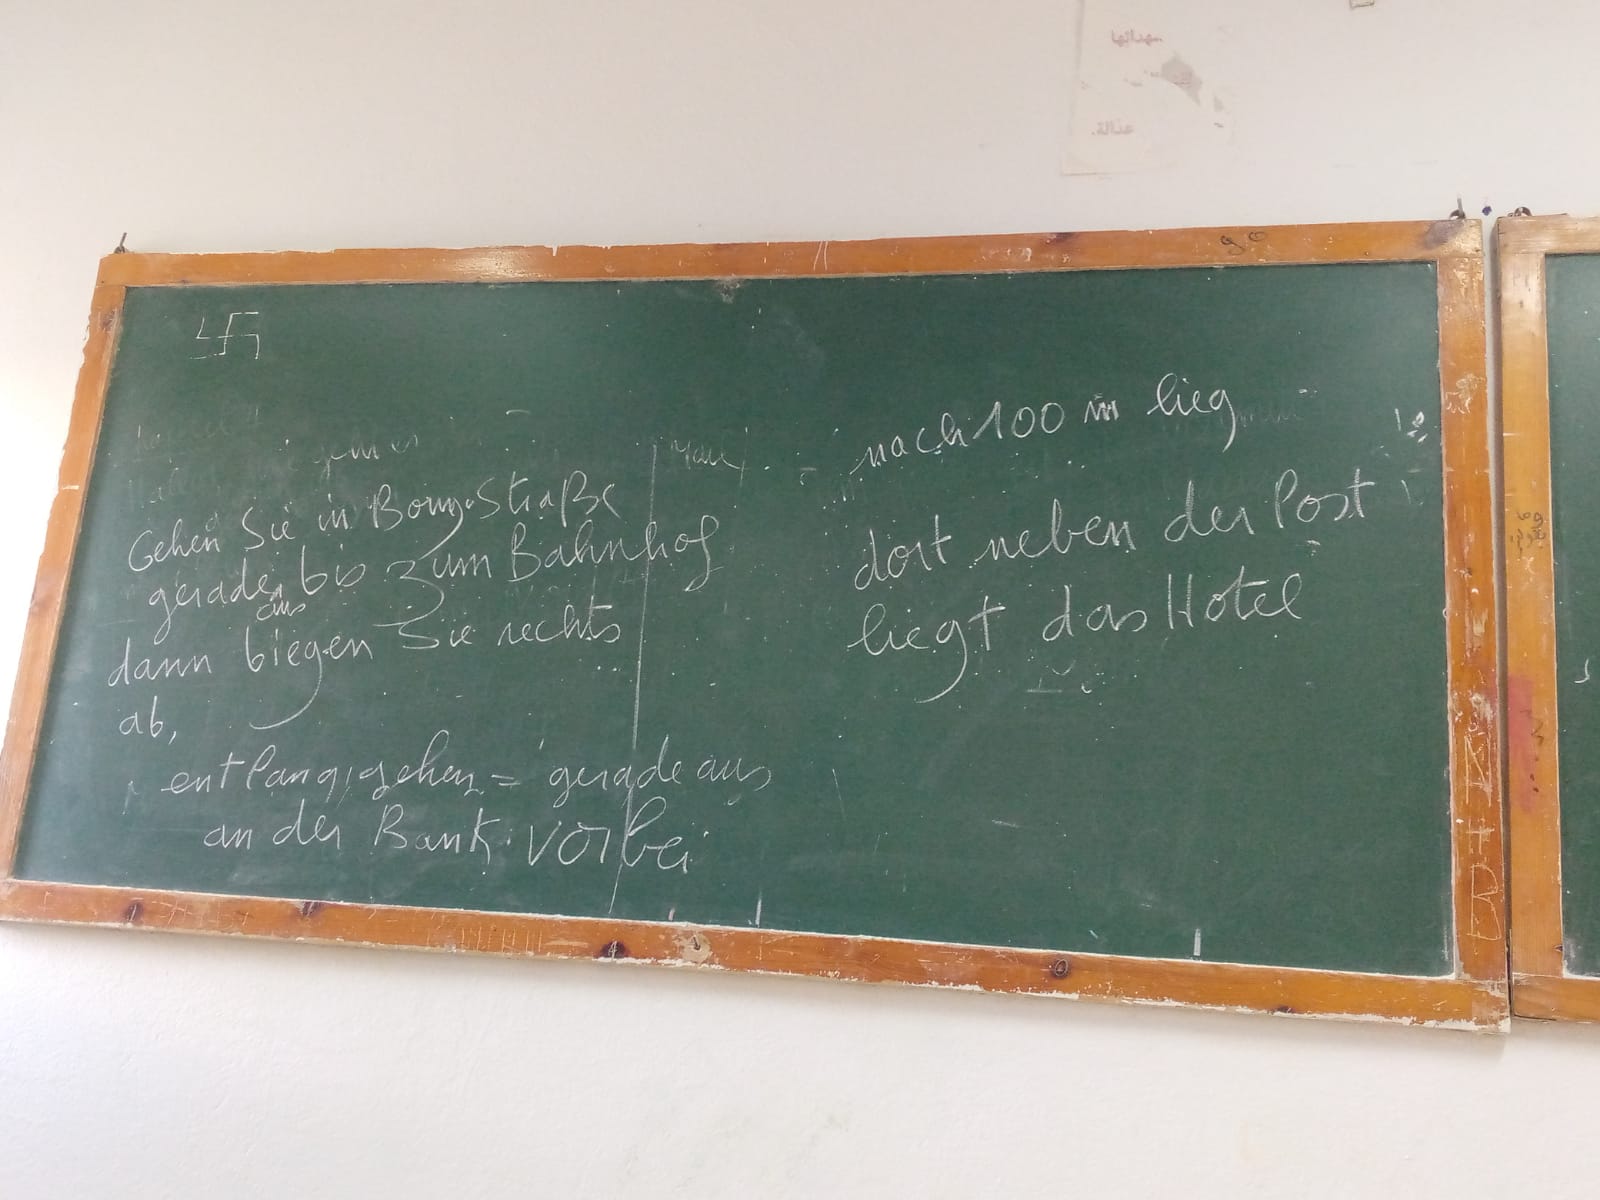 Gehen Sie in Bourg-Straße
gerade bis zum Bahnhof
aus
dann biegen Sie rechts
ab,
entlang gehen = geradeaus
an der Bank vorbei
nach 100 m lieg
dort neben der Post
liegt das Hotel